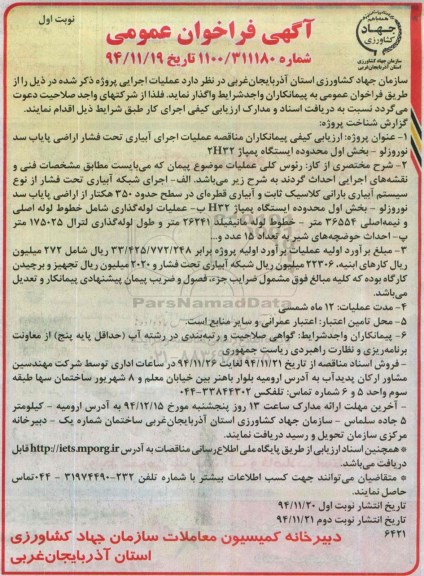 نوبت اول
جهاد کشاورزی
سازمان جهاد کشاورزی
استان آذربایجان غربی
آگهی فراخوان عمومی
شماره ۱۱۰۰/۳۱۱۱۸۰ تاریخ ۹۴/۱۱/۱۹
سازمان جهاد کشاورزی استان آذربایجان‌غربی در نظر دارد عملیات اجرایی پروژه ذکر شده در ذیل را از
طریق فراخوان عمومی به پیمانکاران واجدشرایط واگذار نماید. فلذا از شرکتهای واجد صلاحیت دعوت
می گردد نسبت به دریافت اسناد و مدارک ارزیابی کیفی اجرای کار طبق شرایط ذیل اقدام نمایند.
گزارش شناخت پروژه:
۱- عنوان پروژه: ارزیابی کیفی پیمانکاران مناقصه عملیات اجرای آبیاری تحت فشار اراضی پایاب سد
نوروزلو - بخش اول محدوده ایستگاه پمپاژ ۲H۳۲
۲- شرح مختصری از کار: رئوس کلی عملیات موضوع پیمان که می‌بایست مطابق مشخصات فنی و
نقشه‌های اجرایی احداث گردند به شرح زیر می‌باشد. الف- اجرای شبکه آبیاری تحت فشار از نوع
سیستم آبیاری بارانی کلاسیک ثابت و آبیاری قطره‌ای در سطح حدود ۳۵۰ هکتار از اراضی پایاب سد
نوروزلو - بخش اول محدوده ایستگاه پمپاژ H۳۲ ب- عملیات لوله‌گذاری شامل خطوط لوله اصلی
و نیمه‌اصلی ۳۶۵۵۴ متر - خطوط لوله مانیفیلد ۲۶۲۴۱ متر و طول لوله‌گذاری لترال ۱۷۵۰۲۵ متر
پ- احداث حوضچه‌های شیر به تعداد ۱۵ عدد و...
۳- مبلغ برآورد اولیه عملیات برآورد اولیه پروژه برابر ۳۳/۴۲۵/۷۷۲/۲۴۸ ریال شامل ۲۷۲ میلیون
ریال کارهای ابنیه، ۲۲۳۰۶ میلیون ریال شبکه آبیاری تحت فشار و ۲۰۲۰ میلیون ریال تجهیز و برچیدن
کارگاه بوده که کلیه مبالغ فوق مشمول ضرایب جزء فصول و ضریب پیمان پیشنهادی پیمانکار و تعدیل
می‌باشد.
۴- مدت عملیات: ۱۲ ماه شمسی
۵- محل تامین اعتبار: اعتبار عمرانی و سایر منابع است.
۶- پیمانکاران واجدشرایط: گواهی صلاحیت و رتبه‌بندی در رشته آب (حداقل پایه پنج) از معاونت
برنامه‌ریزی و نظارت راهبردی ریاست جمهوری
- فروش اسناد مناقصه از تاریخ ۹۴/۱۱/۲۱ لغایت ۹۴/۱۱/۲۶ در ساعات اداری توسط شرکت مهندسین
مشاور ارکان پدیدآب به آدرس ارومیه بلوار باهنر بین خیابان معلم و ۸ شهریور ساختمان سها طبقه
سوم واحد ۵ و ۶ شماره تماس: تلفکس ۳۳۸۴۴۳۰۲-۰۴۴
- آخرین مهلت ارائه مدارک ساعت ۱۳ روز پنجشنبه مورخ ۹۴/۱۲/۱۵ به آدرس ارومیه - کیلومتر
۵ جاده سلماس - سازمان جهاد کشاورزی استان آذربایجان‌غربی ساختمان شماره یک - دبیرخانه
مرکزی سازمان تحویل و رسید دریافت نمایند.
* همچنین اسناد ارزیابی از طریق پایگاه ملی اطلاع‌رسانی مناقصات به آدرس http://iets.mporg.ir قابل
دریافت می‌باشد.
* متقاضیان می‌توانند جهت کسب اطلاعات بیشتر با شماره تلفن ۲۳۲-۳۱۹۷۴۴۹۰ - ۰۴۴ تماس
حاصل نمایند.
تاریخ انتشار نوبت اول ۹۴/۱۱/۲۰
تاریخ انتشار نوبت دوم ۹۴/۱۱/۲۱
۶۴۲۱
دبیرخانه کمیسیون معاملات سازمان جهاد کشاورزی
استان آذربایجان‌غربی
ParsNamadData